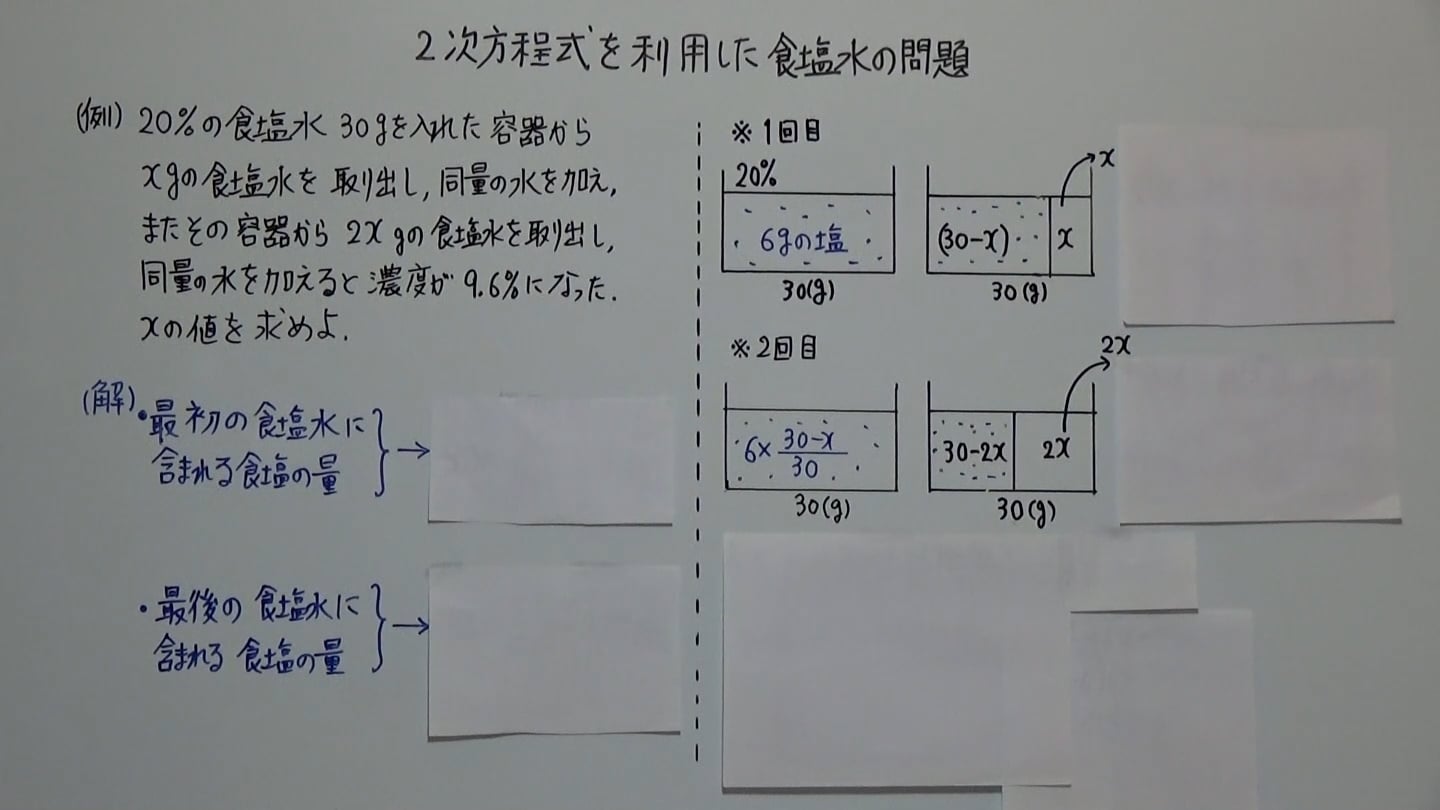 2次方程式を利用した食塩水の問題
(例) 20%の食塩水 30gを入れた容器から
xgの食塩水を取り出し,同量の水を加え,
またその容器から 2x gの食塩水を取り出し,
同量の水を加えると濃度が 9.6%になった.
xの値を求めよ.
(解)・最初の食塩水に
含まれる食塩の量
→
・最後の食塩水に
含まれる食塩の量
→
※1回目
20%
6gの塩
30(g)
x
(30-x)
x
30(g)
※2回目
6×(30-x)/30
30(g)
2x
30-2x
2x
30(g)